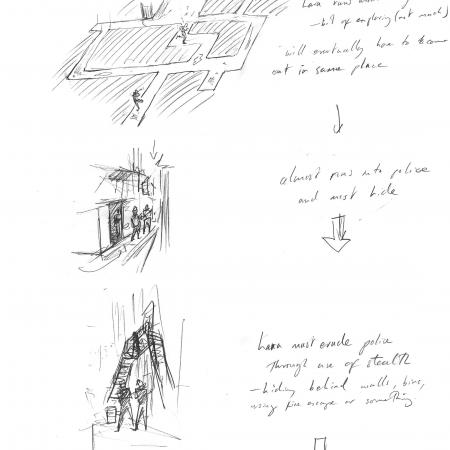 Lara runs
– bit of exploring (not much)
will eventually have to come
out in same place
almost runs into police
and must hide
Lara must evade police
through use of stealth
– hiding behind walls, bins,
using fire escape or something